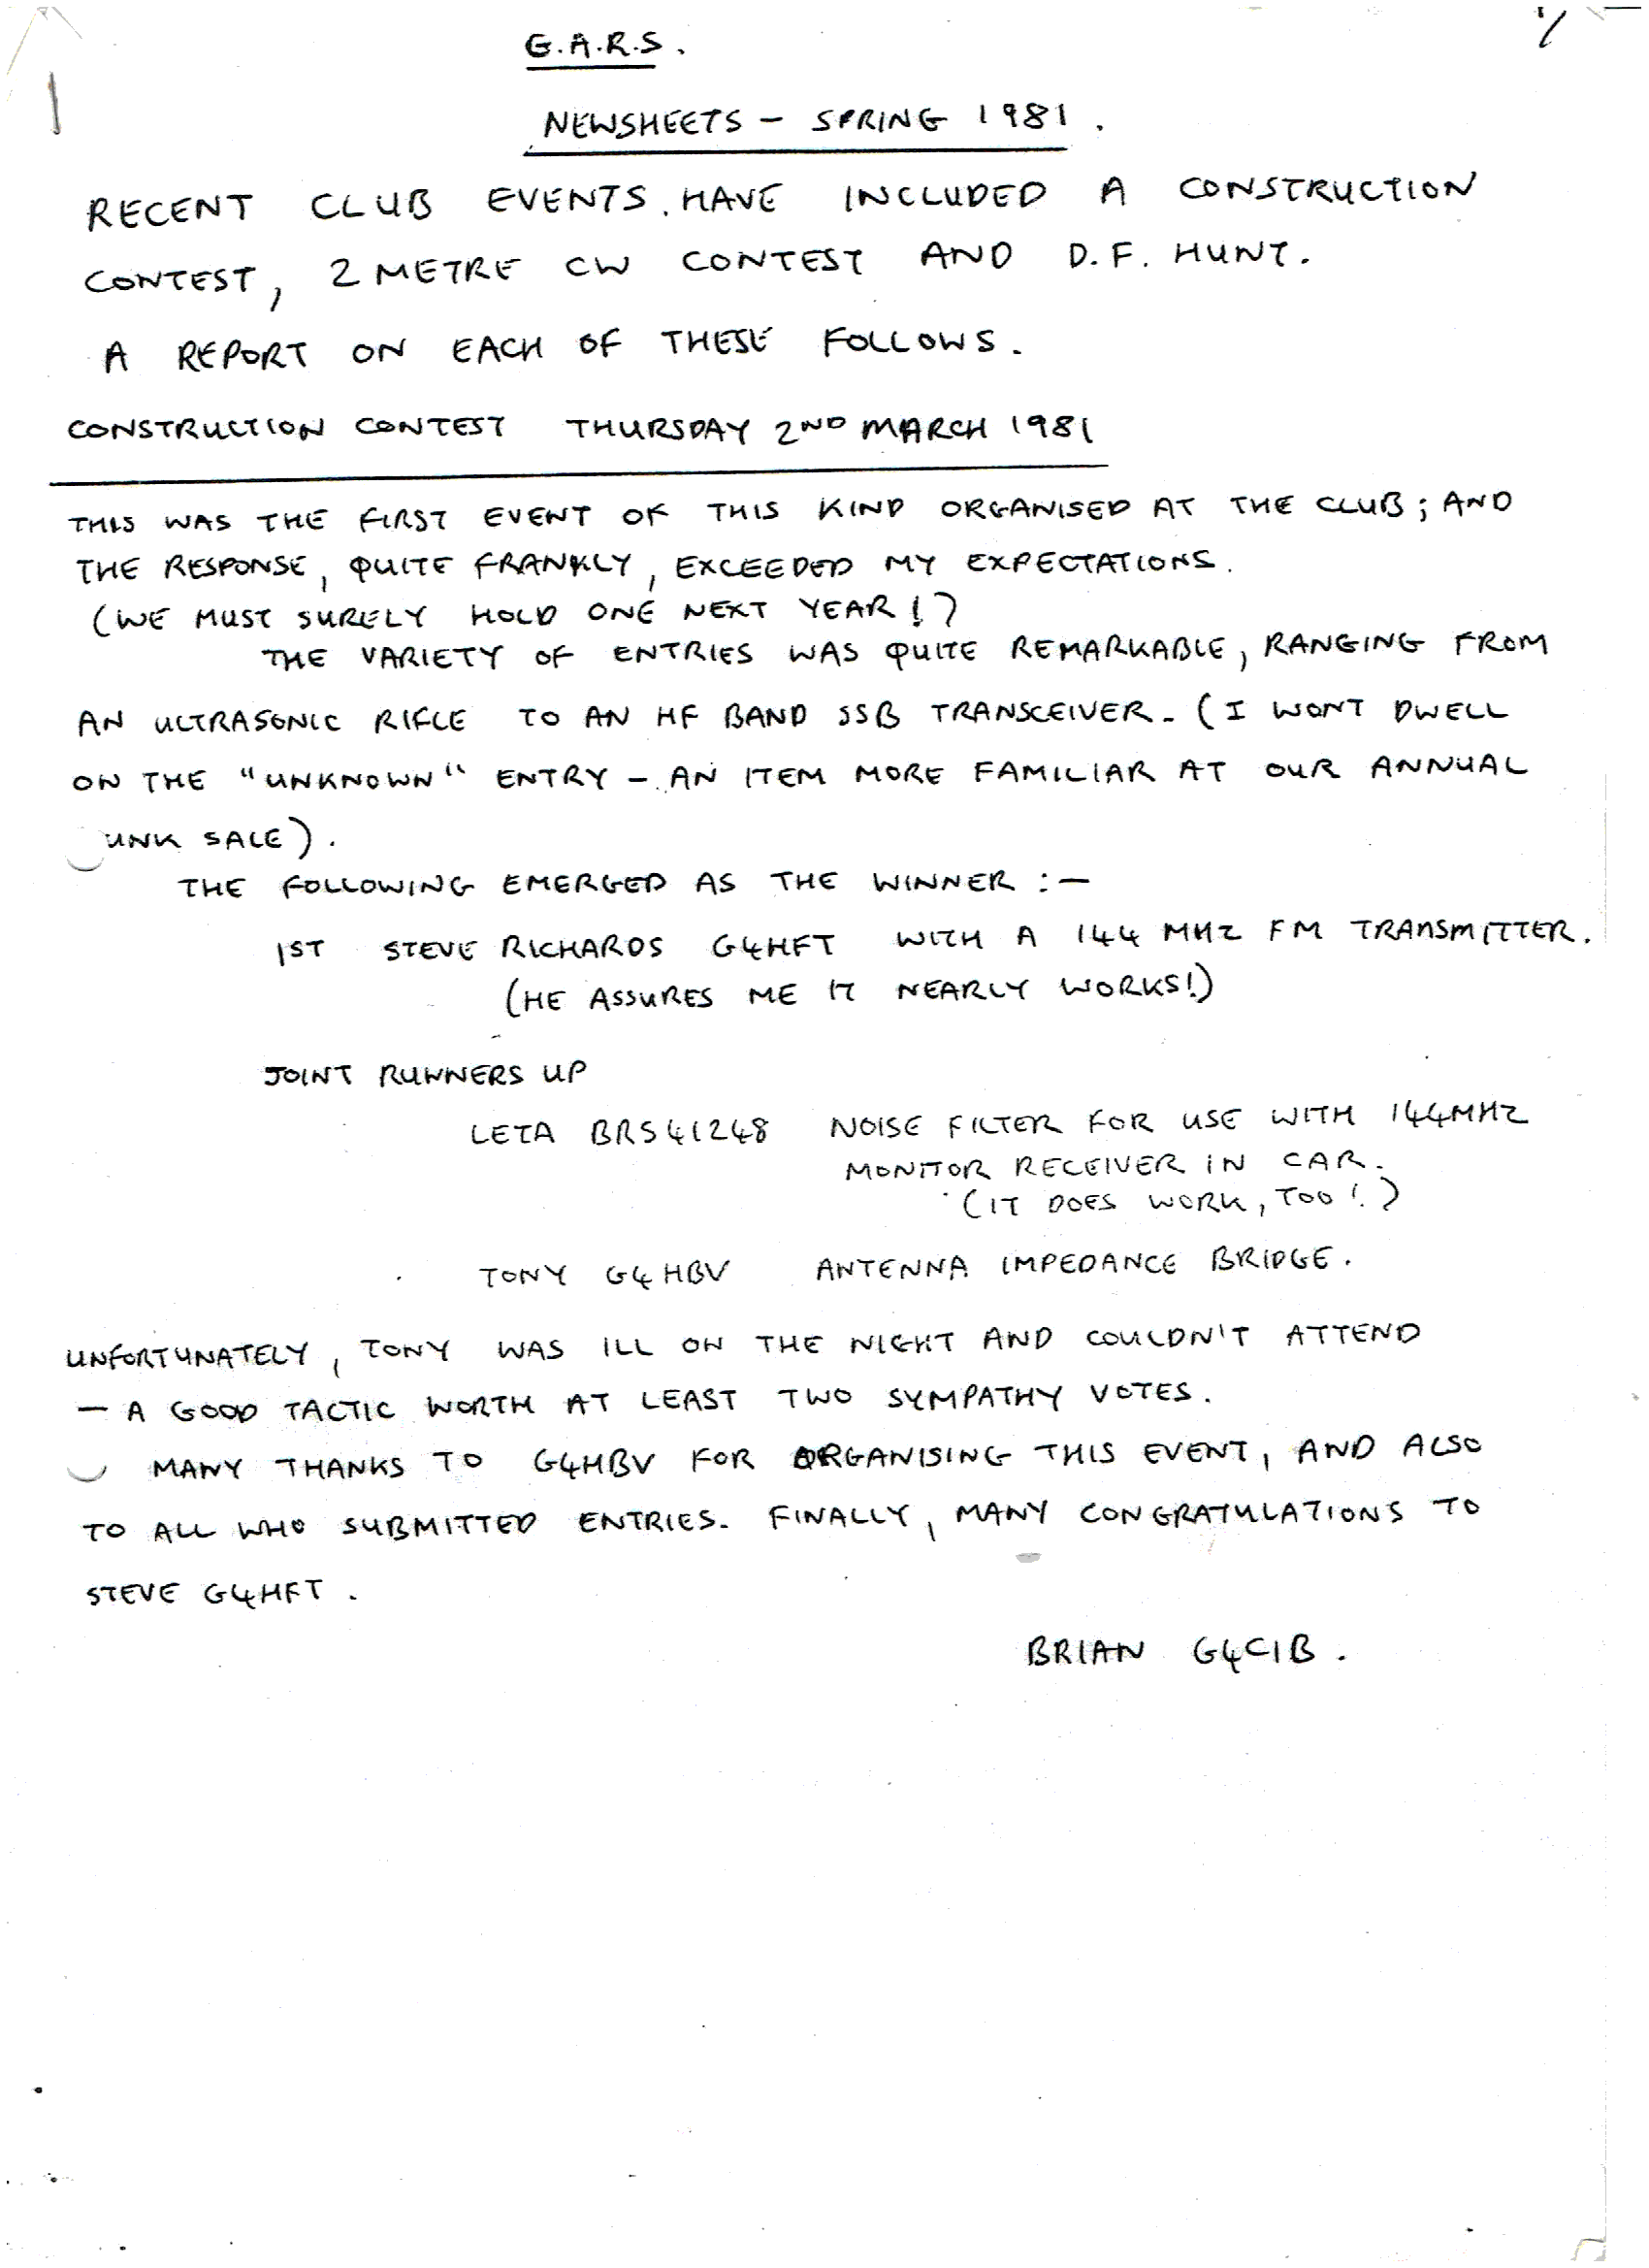 1/
G.A.R.S.
NEWSHEETS - SPRING 1981.
RECENT CLUB EVENTS. HAVE INCLUDED A CONSTRUCTION
CONTEST, 2 METRE CW CONTEST AND D.F. HUNT.
A REPORT ON EACH OF THESE FOLLOWS.
CONSTRUCTION CONTEST THURSDAY 2ND MARCH 1981
THIS WAS THE FIRST EVENT OF THIS KIND ORGANISED AT THE CLUB; AND
THE RESPONSE, QUITE FRANKLY, EXCEEDED MY EXPECTATIONS.
(WE MUST SURELY HOLD ONE NEXT YEAR!?
THE VARIETY OF ENTRIES WAS QUITE REMARKABLE, RANGING FROM
AN ULTRASONIC RIFLE TO AN HF BAND SSB TRANSCEIVER. (I WONT DWELL
ON THE "UNKNOWN" ENTRY - AN ITEM MORE FAMILIAR AT OUR ANNUAL
JUNK SALE).
THE FOLLOWING EMERGED AS THE WINNER :-
1ST STEVE RICHARDS G4HFT WITH A 144 MHZ FM TRANSMITTER.
(HE ASSURES ME IT NEARLY WORKS!)
JOINT RUNNERS UP
LETA BRS41248 NOISE FILTER FOR USE WITH 144MHZ
MONITOR RECEIVER IN CAR.
(IT DOES WORK, TOO!)
TONY G4HBV ANTENNA IMPEDANCE BRIDGE.
UNFORTUNATELY, TONY WAS ILL ON THE NIGHT AND COULDN'T ATTEND
- A GOOD TACTIC WORTH AT LEAST TWO SYMPATHY VOTES.
MANY THANKS TO G4HBV FOR ORGANISING THIS EVENT, AND ALSO
TO ALL WHO SUBMITTED ENTRIES. FINALLY, MANY CONGRATULATIONS TO
STEVE G4HFT.
BRIAN G4CIB.